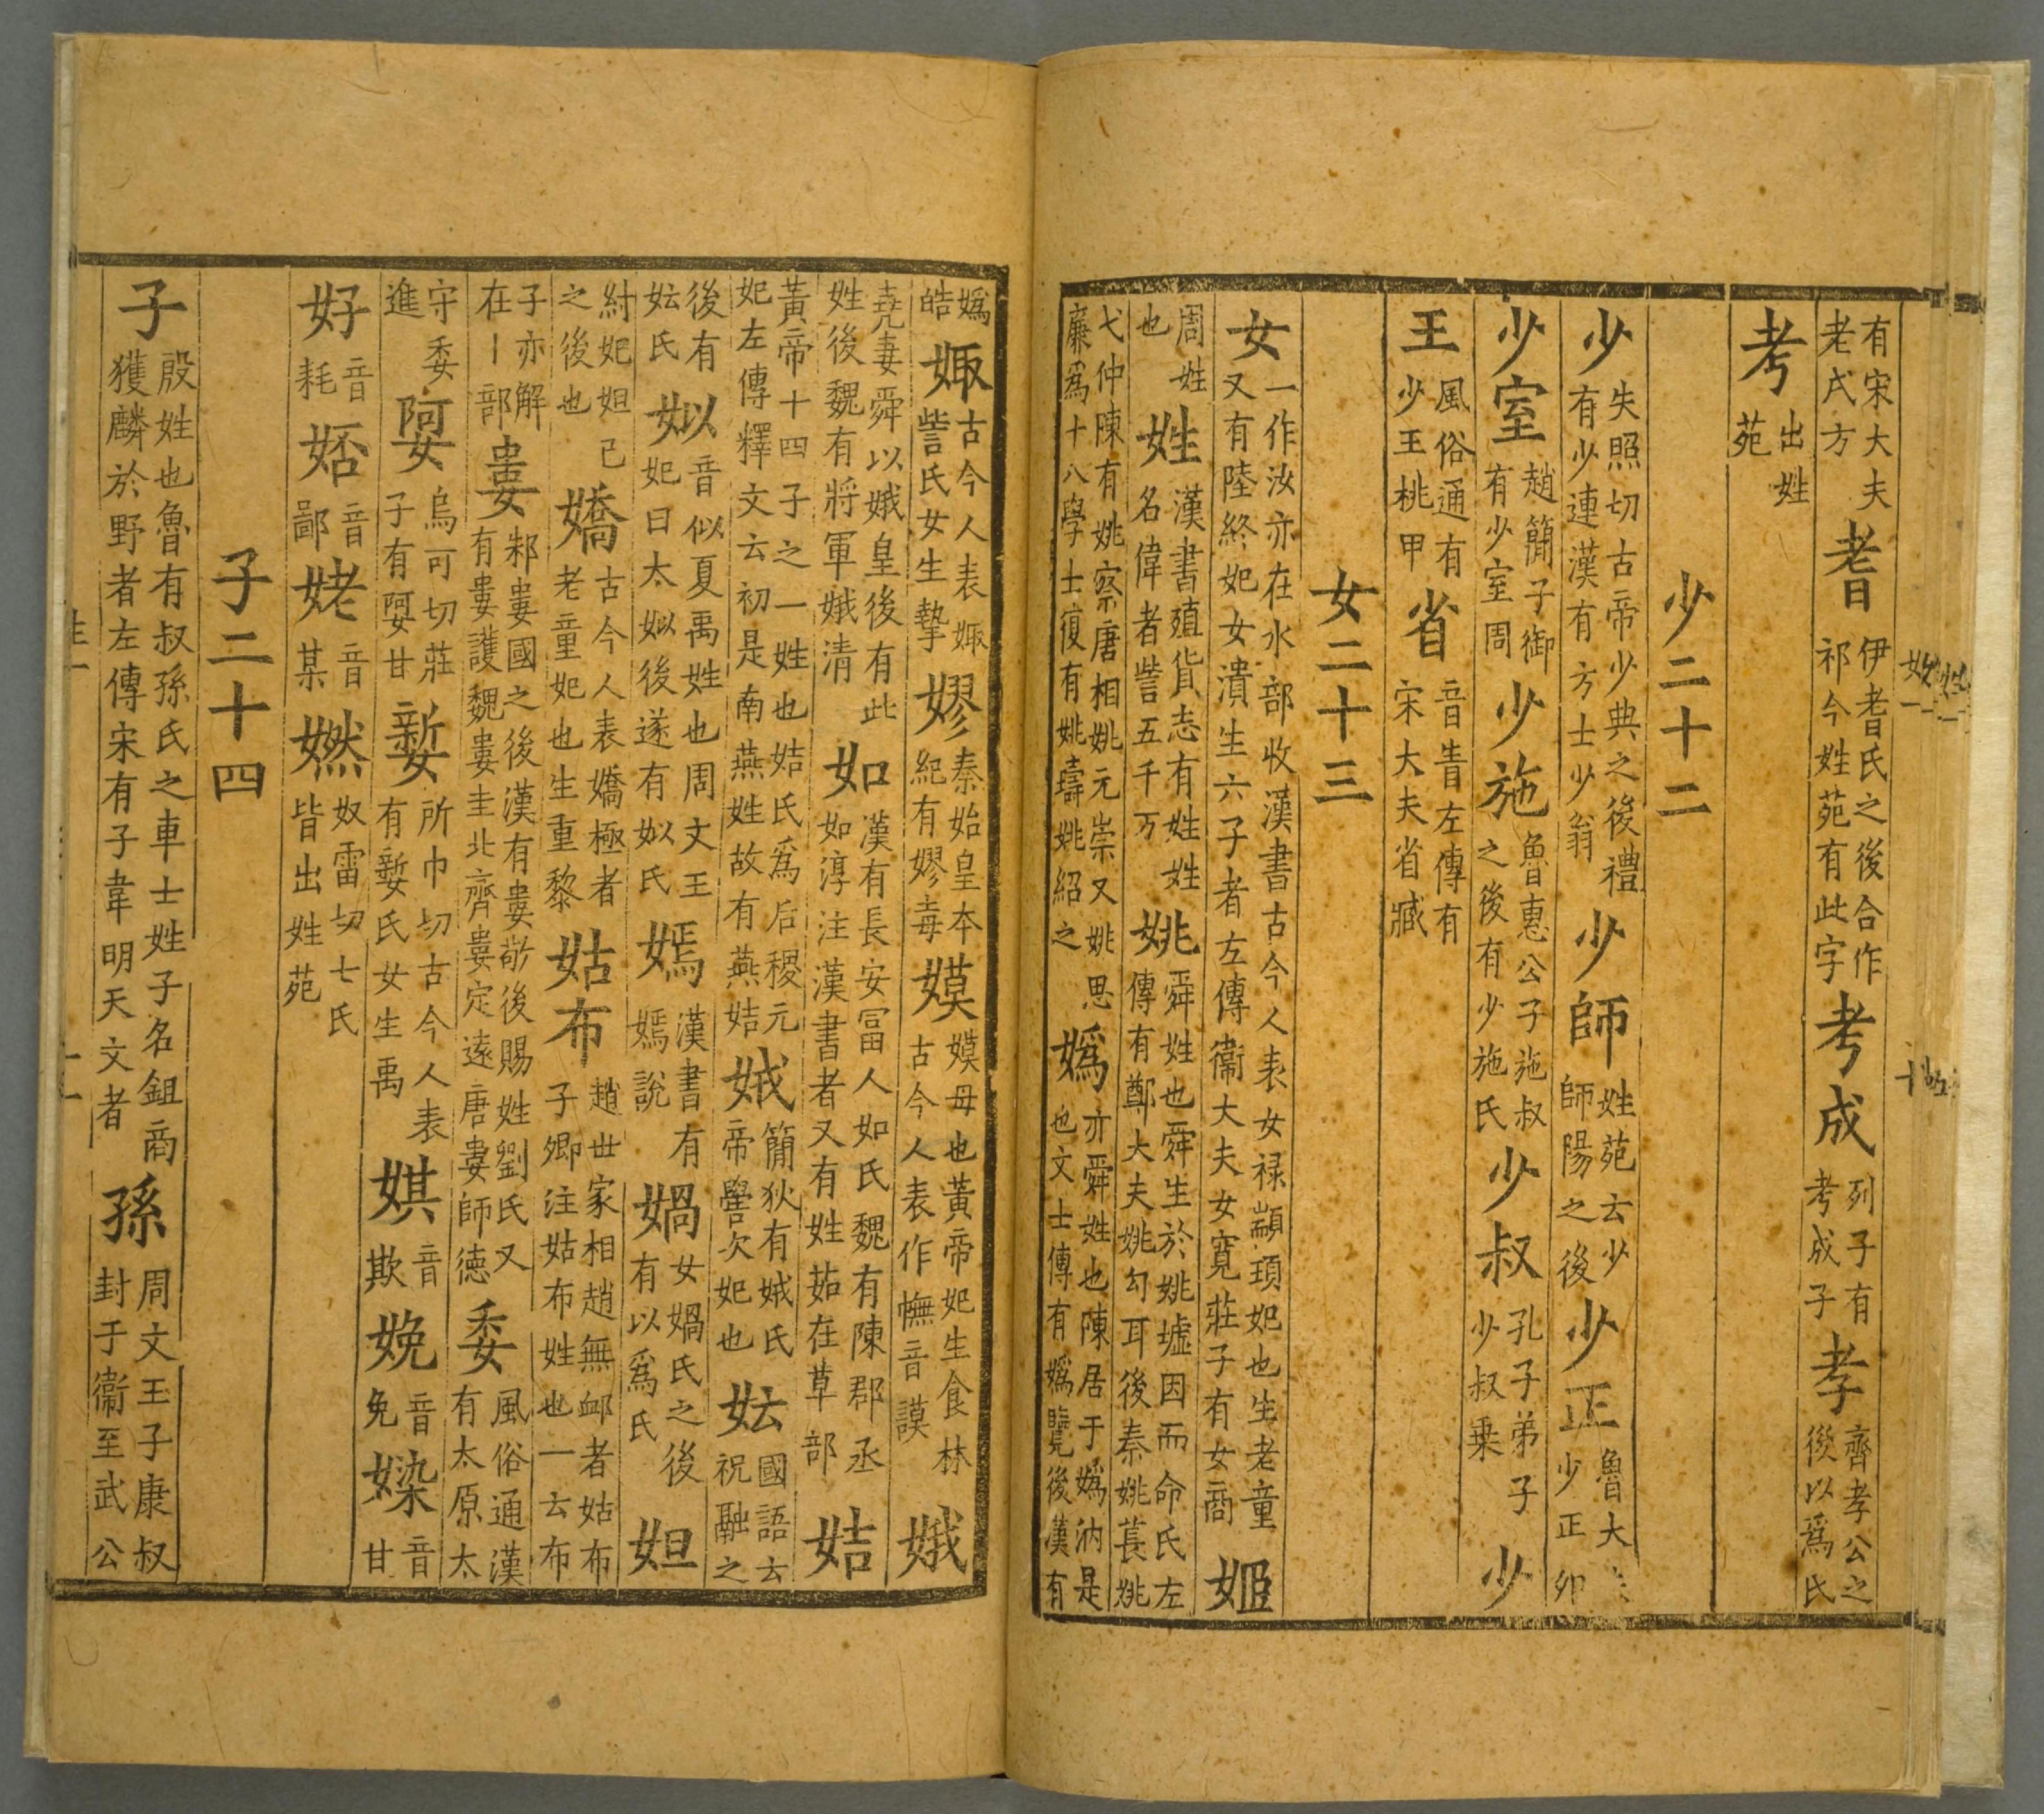 有宋大夫老氏方耆伊耆氏之後合作祁今姓苑有此字考成列子有考成子孝齊孝公之後以爲氏
考出姓苑
少二十二
少失照切古帝少典之後禮有少連漢有方士少翁少師姓苑云少師陽之後少正魯大少正卯
少室趙簡子御有少室周少施魯惠公子施叔之後有少施氏少叔孔子弟子少叔乗少
王風俗通有少王桃甲省音眚左傳有宋大夫省臧
女二十三
女一作汝亦在水部收漢書古今人表女禄顓頊妃也生老童又有陸終妃女潰生六子者左傳衞大夫女寬莊子有女商姬
周姓也姓漢書殖貨志有姓姓名偉者訾五千万姚舜姓也舜生於姚墟因而命氏左傳有鄭大夫姚勾耳後秦姚萇姚
弋仲陳有姚察唐相姚元崇又姚思廉爲十八學士復有姚璹姚紹之嬀亦舜姓也陳居于嬀汭是也文士傳有嬀覽後漢有
嬀皓娵古今人表娵訾氏女生摯嫪秦始皇本紀有嫪毐嫫嫫母也黃帝妃生食林古今人表作㒇音謨娥
堯妻舜以娥皇後有此姓後魏有將軍娥清如漢有長安富人如氏魏有陳郡丞如淳注漢書者又有姓茹在草部姞
黃帝十四子之一姓也姞氏爲后稷元妃左傳釋文云初是南燕姓故有燕姞娀簡狄有娀氏帝嚳次妃也妘國語云祝融之
後有妘氏姒音似夏禹姓也周文王妃曰太姒後遂有姒氏嫣漢書有嫣說媧女媧氏之後有以爲氏妲
紂妃妲己之後也嬌古今人表嬌極者老童妃也生重黎姑布趙世家相趙無卹者姑布子卿注姑布姓也一云布
子亦解在丨部婁邾婁國之後漢有婁敬後賜姓劉氏又有婁護魏婁圭北齊婁定遠唐婁師德委風俗通漢有太原太
守委進婀烏可切莊子有婀甘㜪所巾切古今人表有㜪氏女生禹娸音欺娩音免音甘
好音耗娝音鄙姥音某奴雷切七氏皆出姓苑
子二十四
子殷姓也魯有叔孫氏之車士姓子名鉏商獲麟於野者左傳宋有子韋明天文者孫周文王子康叔封于衞至武公